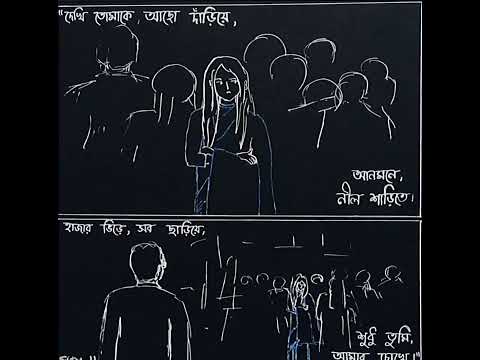 "দেখি তোমাকে, আছো দাঁড়িয়ে,
আনমনে,
নীল শাড়িতে।
হাজার ভিড়ে, সব ছাড়িয়ে,
শুধু তুমি,
আমার চোখে।"